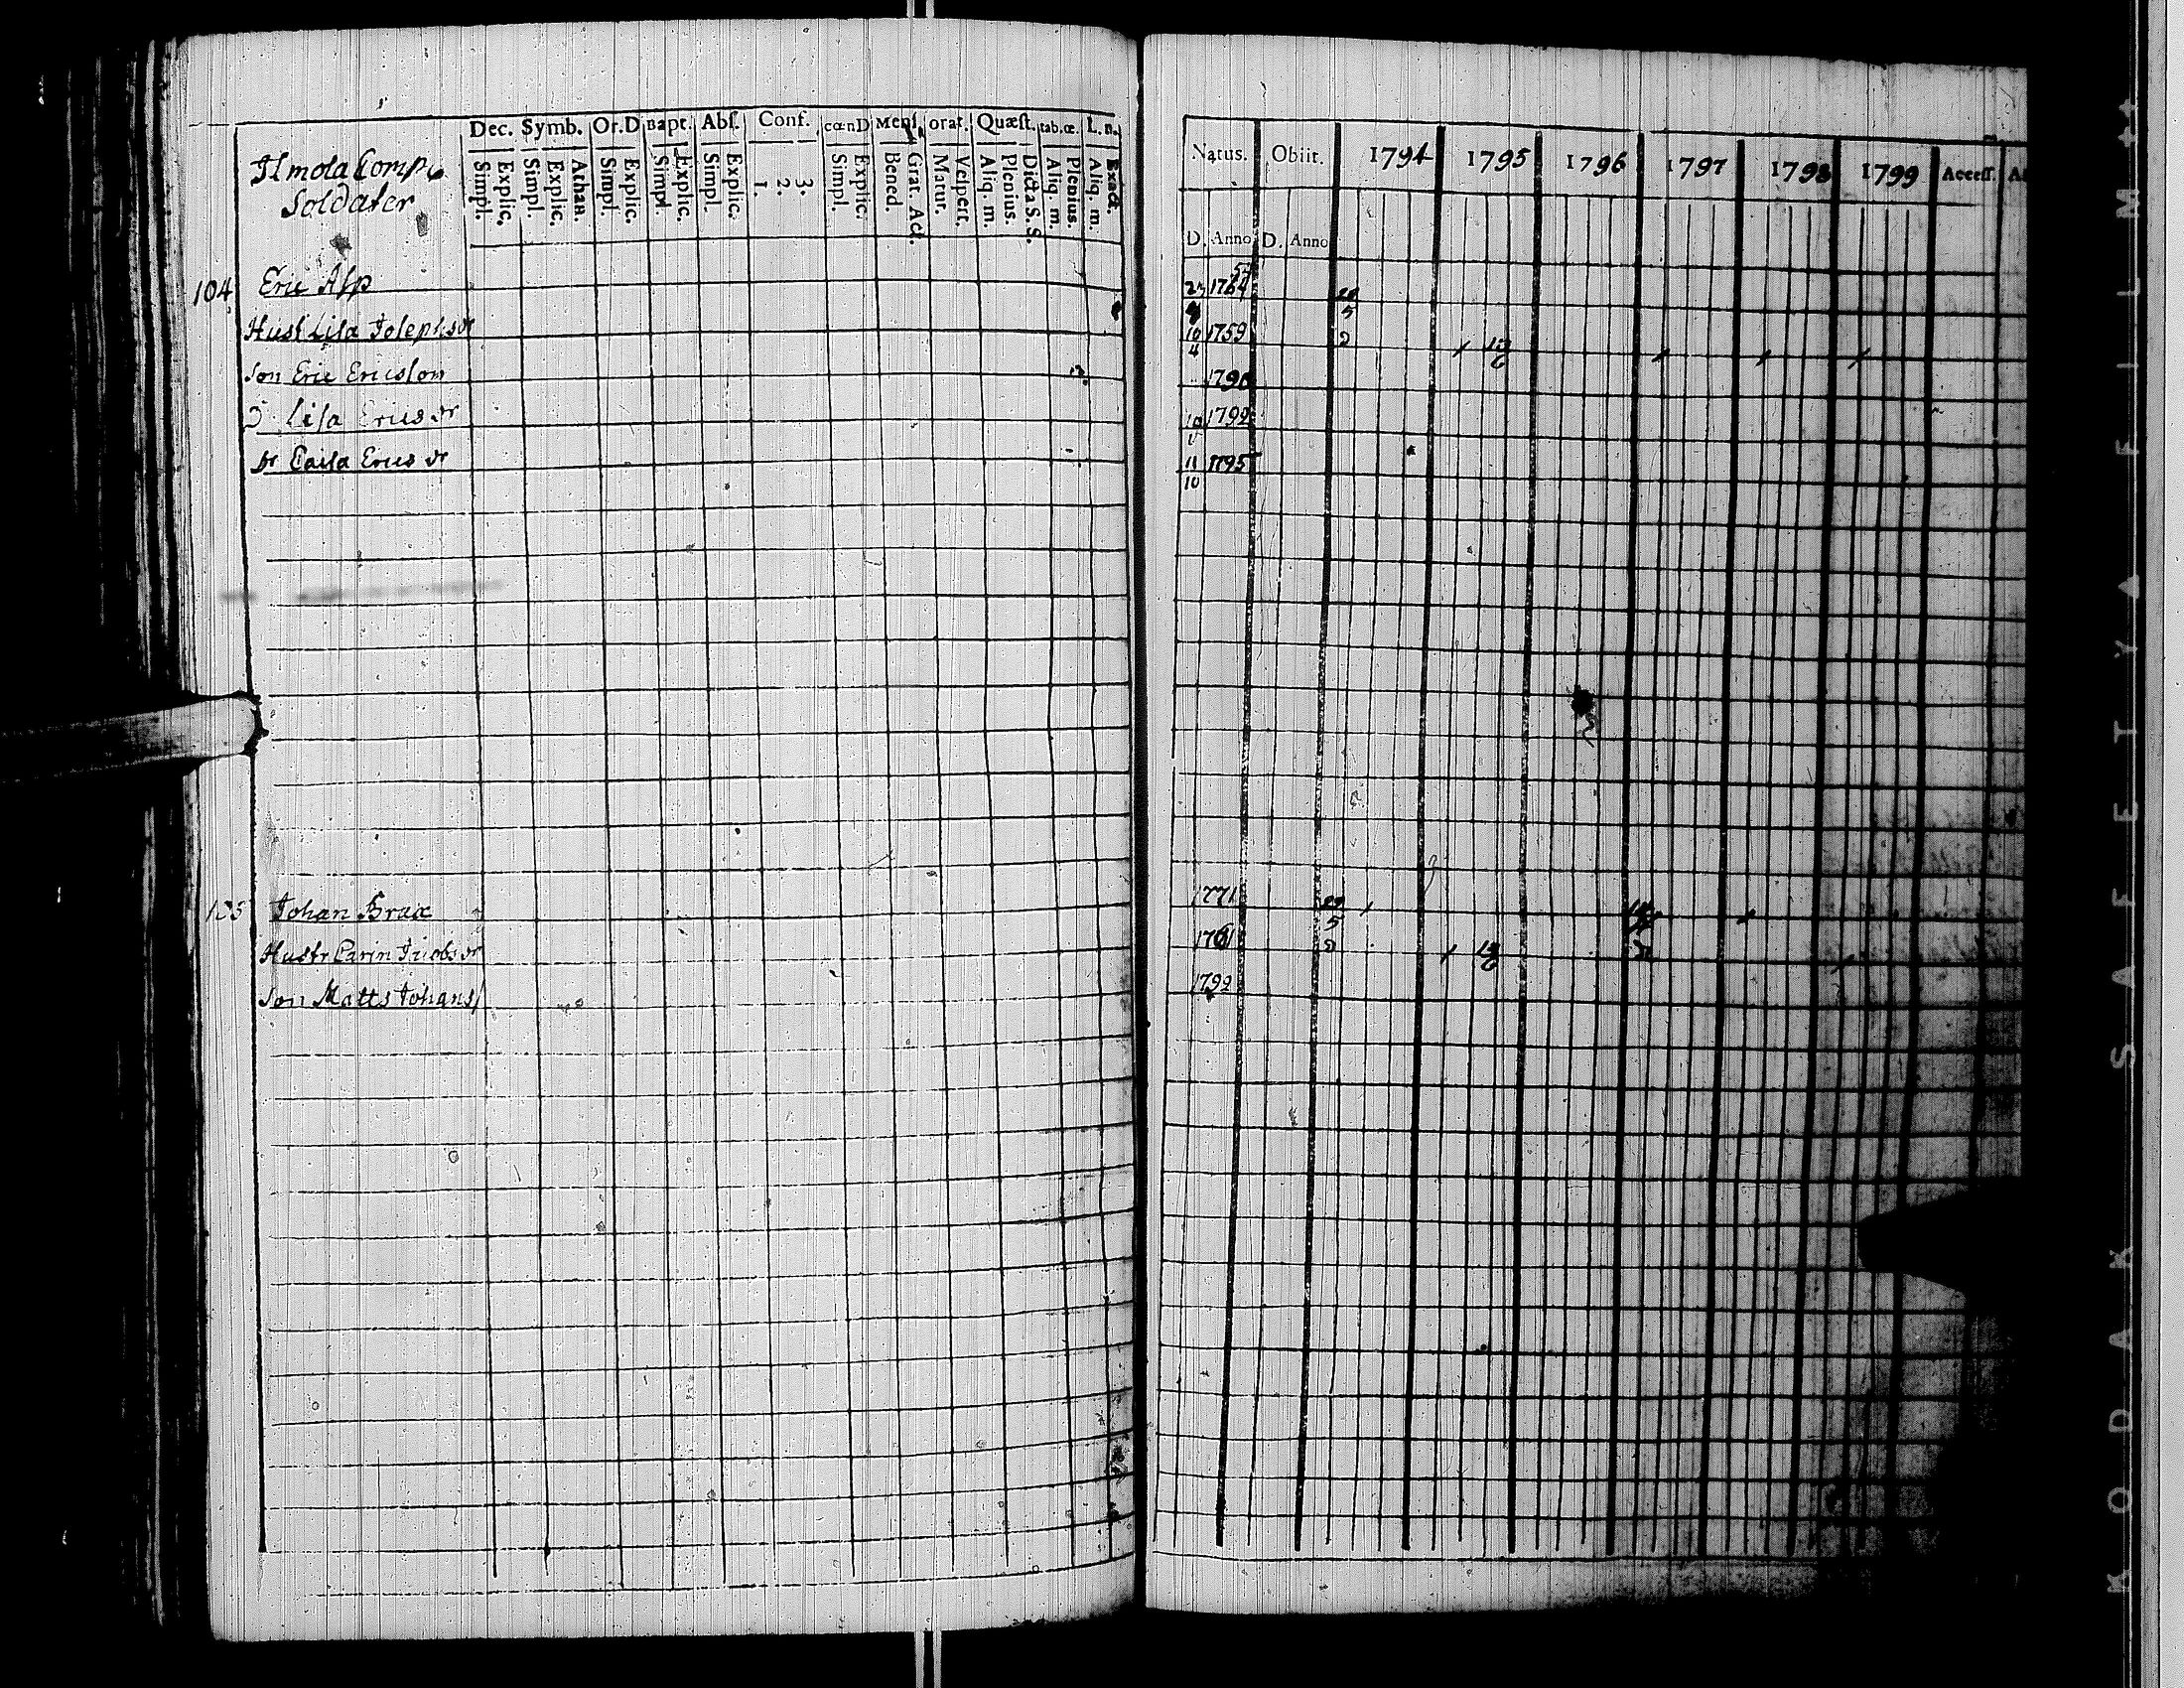 Ilmola Comp
Soldater
Dec. Symb. Or.D Bapt. Abſ. Conf. cœnD Menſ. orat. Quæſt. tab.œ. L.n.
Simpl. Explic. Simpl. Explic. Athan. Simpl. Explic. Simpl. Explic. Simpl. Explic. 1. 2. 3. Simpl. Explic. Bened. Grat. Act. Matut. Veſpert. Aliq. m. Plenius. Dicta S.S. Aliq. m. Plenius. Aliq. m. Exact.
104 Eric Asp
Hust Lisa Josephs dr
Son Eric Ericsson
D Lisa Erics dr
dr Caisa Erics dr
105 Johan Brax
Hustr Carin Jacobs dr
Son Matts Johans
Natus. Obiit. 1794 1795 1796 1797 1798 1799 Acceſſ.
D. Anno D. Anno
1764
10 1759
4
1790
10 1792
1
11 1795
10
1771
1761
1792
KODAK SAFETY FILM